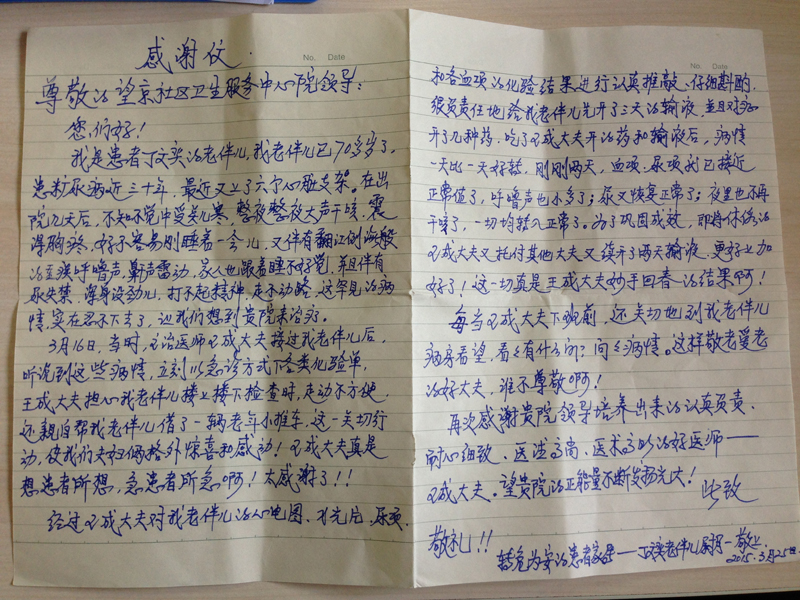 No. Date
感谢仪
尊敬的望京社区卫生服务中心院领导：
您们好！
我是患者丁文奖的老伴儿，我老伴儿已70多岁了。
患糖尿病近三十年，最近又上了六个心脏支架。在出
院几天后，不知不觉中受美儿寒，整夜整夜大声干咳，震
得胸疼，好不容易刚睡着一会儿，又伴有翻江倒海般
的 呼噜声，鼾声雷动，家人也跟着睡不好觉，并且伴有
尿失禁，浑身没劲儿，打不起精神，走不动路，这罕见的病
情，实在忍不下去了，让我们想到贵院来治疗。
3月16日，当时，主治医师王成大夫接过我老伴儿后，
听说到这些病情，立刻以急诊方式下各类化验单，
王成大夫担心我老伴儿楼上楼下检查时，走动不方便，
还亲自帮我老伴儿借了一辆老年小推车，这一关切行
动，使我们夫妇俩格外惊喜和感动！王成大夫真是
想患者所想，急患者所急啊！太感谢了！！
经过王成大夫对我老伴儿的心电图、X光片、尿项、
No. Date
和各血项的化验结果进行认真推敲、仔细斟酌，
很负责任地给我老伴儿先开了三天的输液，并且对症
开了几种药，吃了王成大夫开的药和输液后，病情
一天比一天好转，刚刚两天，血项、尿项就已接近
正常值了，呼噜声也小多了；尿又恢复正常了；夜里也不再
干咳了，一切均转入正常了。为了巩固成效，即将休假的
王成大夫又托付其他大夫又续开了两天输液，更好上加
好了！这一切真是王成大夫妙手回春的结果啊！
每当王成大夫下班前，还关切地到我老伴儿
病房看望，看看有什么问？问问病情。这样敬老爱老
的好大夫，谁不尊敬啊！
再次感谢贵院领导培养出来的认真负责、
耐心细致、医德高尚、医术高明的好医师——
王成大夫。望贵院的正能量不断发扬光大！
此致
敬礼！！
转危为安的患者家属——丁 老伴儿 敬上
2015.3月25日